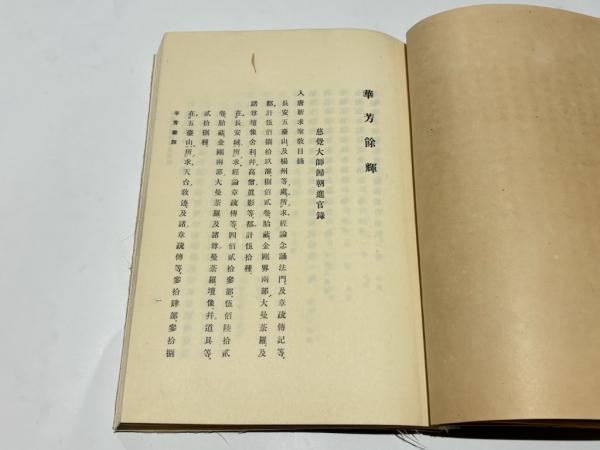 華芳餘輝
慈覺大師歸朝進官錄
入唐新求聖敎目錄
長安五臺山及楊州等處所求經論念誦法門及章疏傳記等
都計伍佰捌拾玖部捌佰貳卷胎藏金剛界兩部大曼荼羅及
諸尊壇像舍利幷高僧眞影等都計伍拾種
在長安城所求經論章疏傳等四佰貳拾參部伍佰陸拾貳
卷胎藏金剛兩部大曼荼羅及諸尊曼荼羅壇像幷道具等
貳拾捌種
在五臺山所求天台敎迹及諸章疏傳等參拾肆部參拾捌
華芳餘輝
一